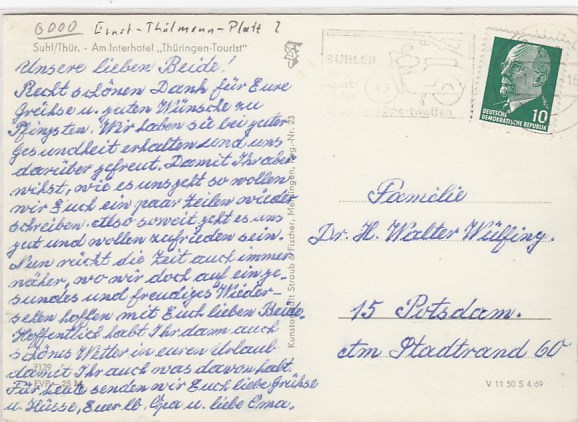 6000 Ernst-Thälmann-Platz 2
Suhl/Thür. - Am Interhotel „Thüringen-Tourist"
Unsere lieben Beide!
Recht schönen Dank für Eure
Grühse u. guten Wünsche zu
Pfingsten. Wir haben sie bei guter
Gesundheit erhalten und uns
darüber gefreut. Damit Ihr aber
wihst, wie es uns geht so wollen
wir Euch ein paar Zeilen wieder
schreiben. Also soweit geht es uns
gut und wollen zufrieden sein.
Nun rückt die Zeit auch immer
näher, wo wir doch auf ein ge-
sundes und freudiges Wieder-
sehen hoffen mit Euch lieben Beide.
Hoffentlich habt Ihr dann auch
schönes Wetter in euren Urlaub
damit Ihr auch was davon habt.
Für heute senden wir Euch liebe Grühse
u. Küsse, Euer lb. Opa u. liebe Oma.
7139
EVP -,25 M
Kunstanstalt Straub & Fischer, Meiningen, Reg.-Nr. 23
SUHLER
Sportwaffen
10
DEUTSCHE
DEMOKRATISCHE REPUBLIK
Familie
Dr. H. Walter Wülfing.
15 Potsdam.
Am Stadtrand 60
V 11 50 S 4 69